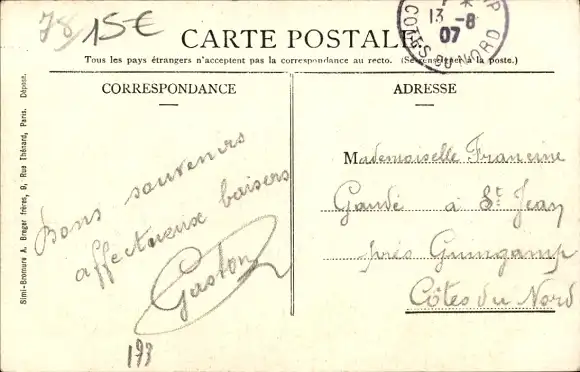 78 15€
13 -8
07
COTES DU NORD
CARTE POSTALE
Tous les pays étrangers n'acceptent pas la correspondance au recto. (Se renseigner à la poste.)
CORRESPONDANCE
ADRESSE
Simi-Bromure A. Breger frères, 9, Rue Thénard, Paris. Déposé.
Bons souvenirs
affectueux baisers
Gaston
193
Mademoiselle Francine
Gaudé à St Jean
près Guingamp
Côtes du Nord